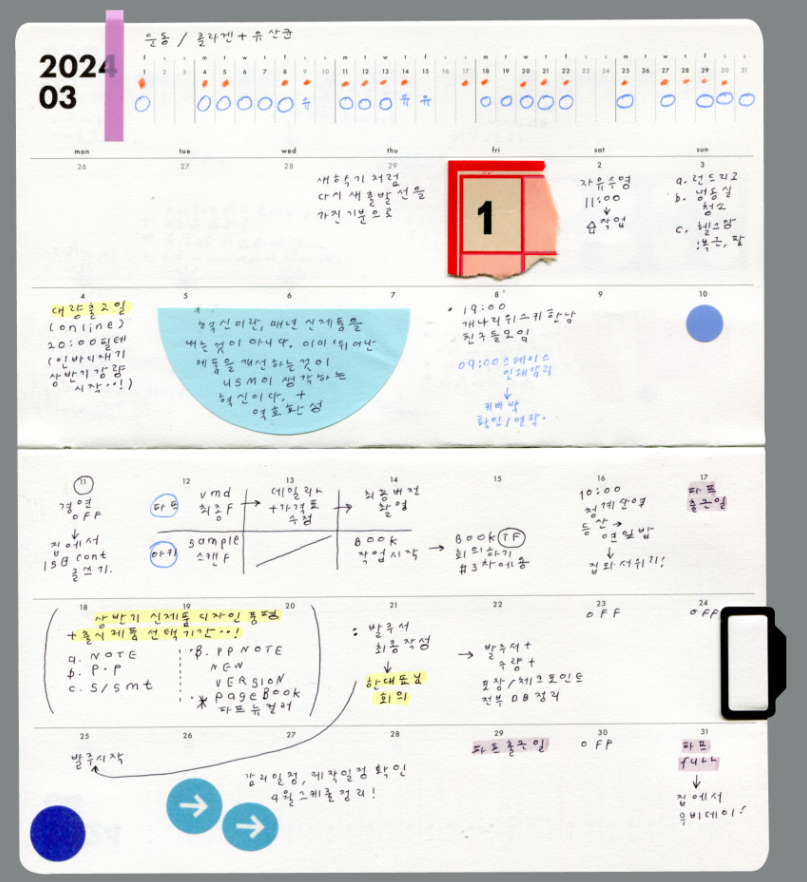 운동 / 콜라겐 + 유산균
2024
03
f s s m t w t f s s m t w t f s s m t w t f s s m t w t f s s
1 2 3 4 5 6 7 8 9 10 11 12 13 14 15 16 17 18 19 20 21 22 23 24 25 26 27 28 29 30 31
유 유 유
mon tue wed thu fri sat sun
26 27 28 29
새학기처럼
다시 새출발선을
가진 기분으로
1
2
자유수영
11:00
↓
작업
3
a. 런드리고
b. 냉동실
청소
c. 헬스장
:복근, 팔
4
대량출고일
(online)
20:00 필테
(인바디재기
상반기감량
시작··!)
5 6 7
혁신이란, 매년 신제품을
내는것이 아니다. 이미 뛰어난
제품을 개선하는것이
USM이 생각하는
혁신이다. +
역호환성
8
• 19:00
개나리위스키한남
친구들모임
09:00 스페이스
인쇄감리
↓
커버박
확인/연락.
9
10
11
경연
OFF
↓
집에서
ISB cont
글쓰기.
12 13 14
파프 vmd
최종F
→ 데일리나
+가격표
수정
→ 최종버전
촬영
아카 Sample
스캔F
BOOK
작업시작
→
15
BOOK TF
회의하기
#3차에용
16
10:00
청계산역
등산 →
연잎밥
↓
집와서쉬기!
17
파프
출근일
18 19 20
상반기 신제품 디자인 품평
+출시제품 선택기간··!
a. NOTE
b. P.P
c. S/Smt
·B. PPNOTE
NEW
VERSION
·* pageBook
파프뉴컬러
21
: 발주서
최종작성
↓
한대표님
회의
22
→ 발주서+
수량+
포장/체크포인트
전부 DB정리
23
OFF
24
OFF
25
발주시작
26 27 28
감리일정, 제작일정 확인
4월스케줄정리!
→
→
29
파프출근일
30
OFF
31
파프
full
↓
집에서
무비데이!